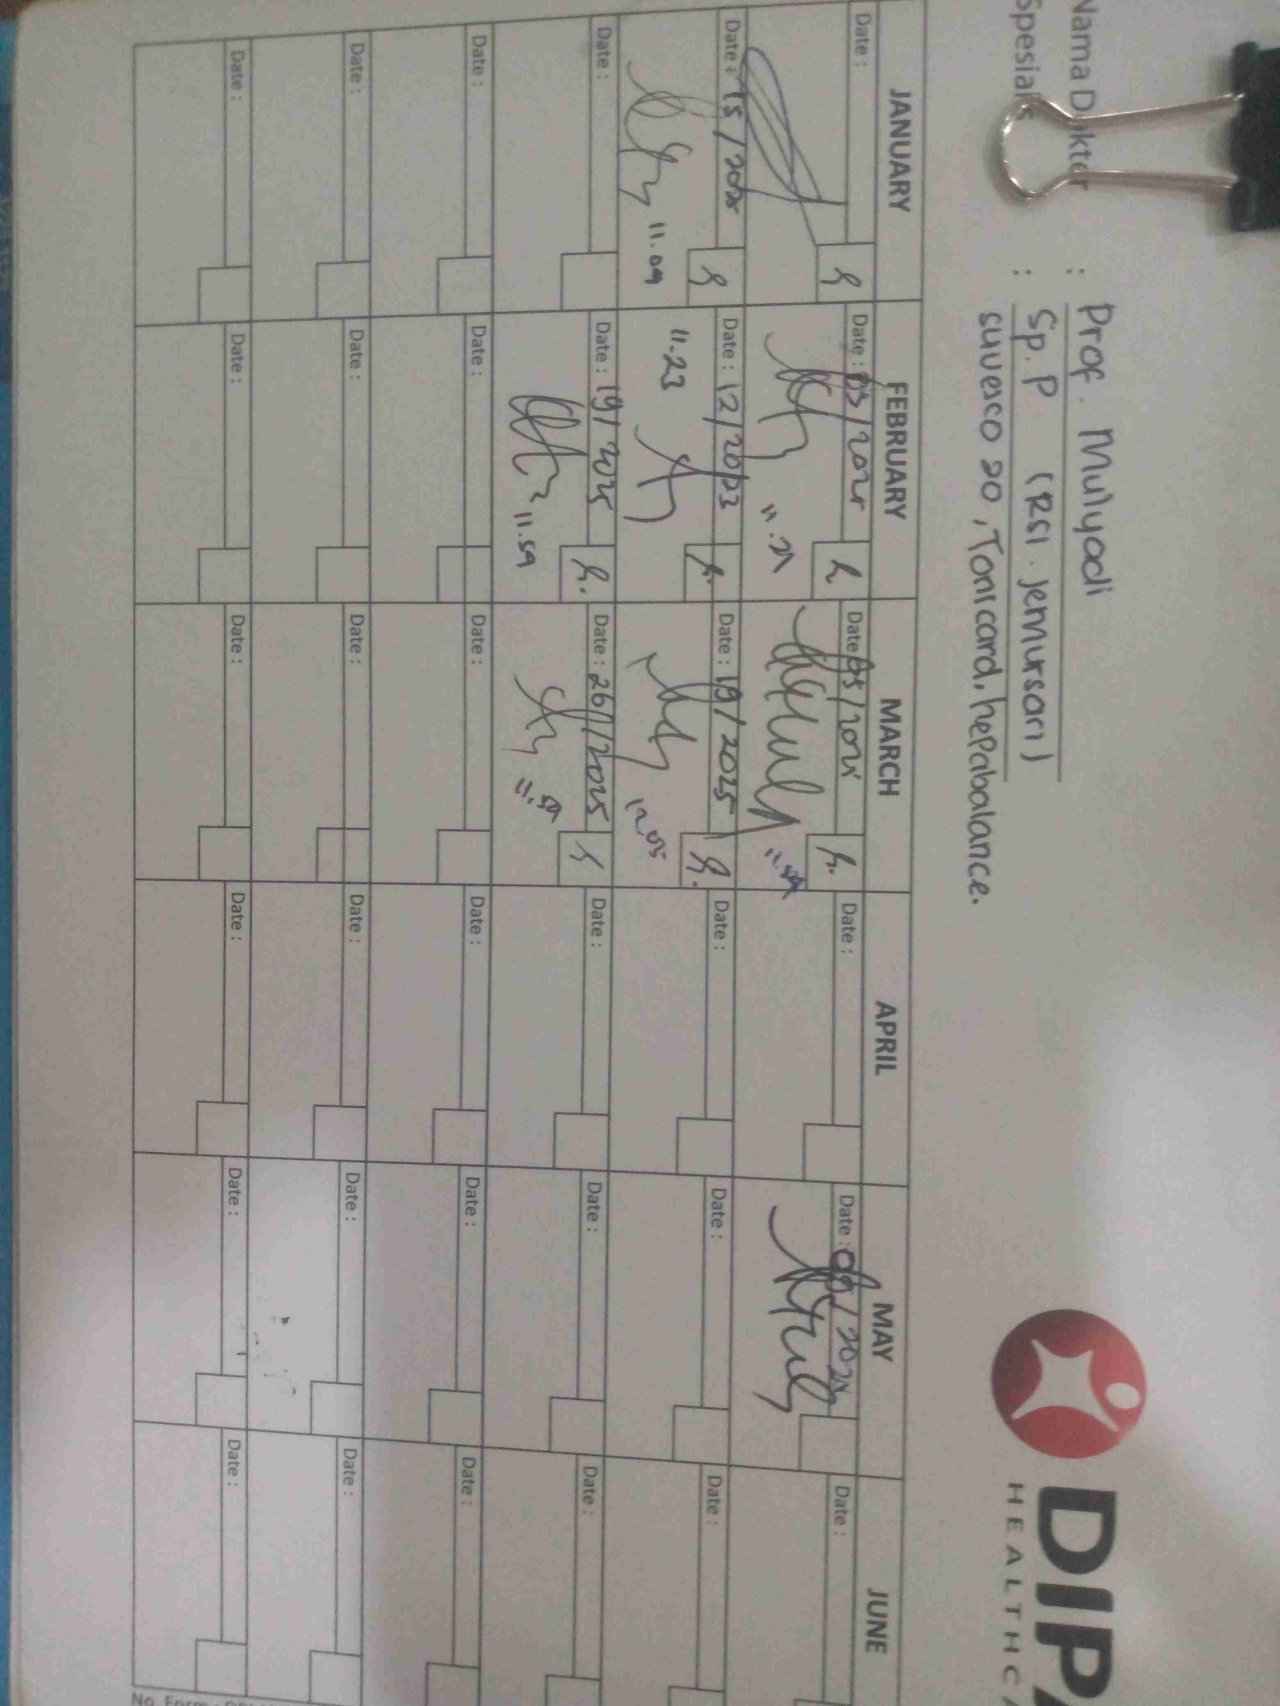 DIPA
HEALTHCA
Nama Dokter : Prof. Mulyadi
Spesialis : Sp. P (RSI. Jemursari)
suvesco 20, Tonicard, hepabalance.
JANUARY FEBRUARY MARCH APRIL MAY JUNE
Date : Date : 05/2025 Date : 05/2025 Date : Date : 09/2025 Date :
11.21 11.59
Date : 15/2025 Date : 12/2023 Date : 19/2025 Date : Date : Date :
11.09 11.23 12.05
Date : Date : 19/2025 Date : 26/1/2025 Date : Date : Date :
11.59 11.59
Date : Date : Date : Date : Date : Date :
Date : Date : Date : Date : Date : Date :
Date : Date : Date : Date : Date : Date :
No. Form